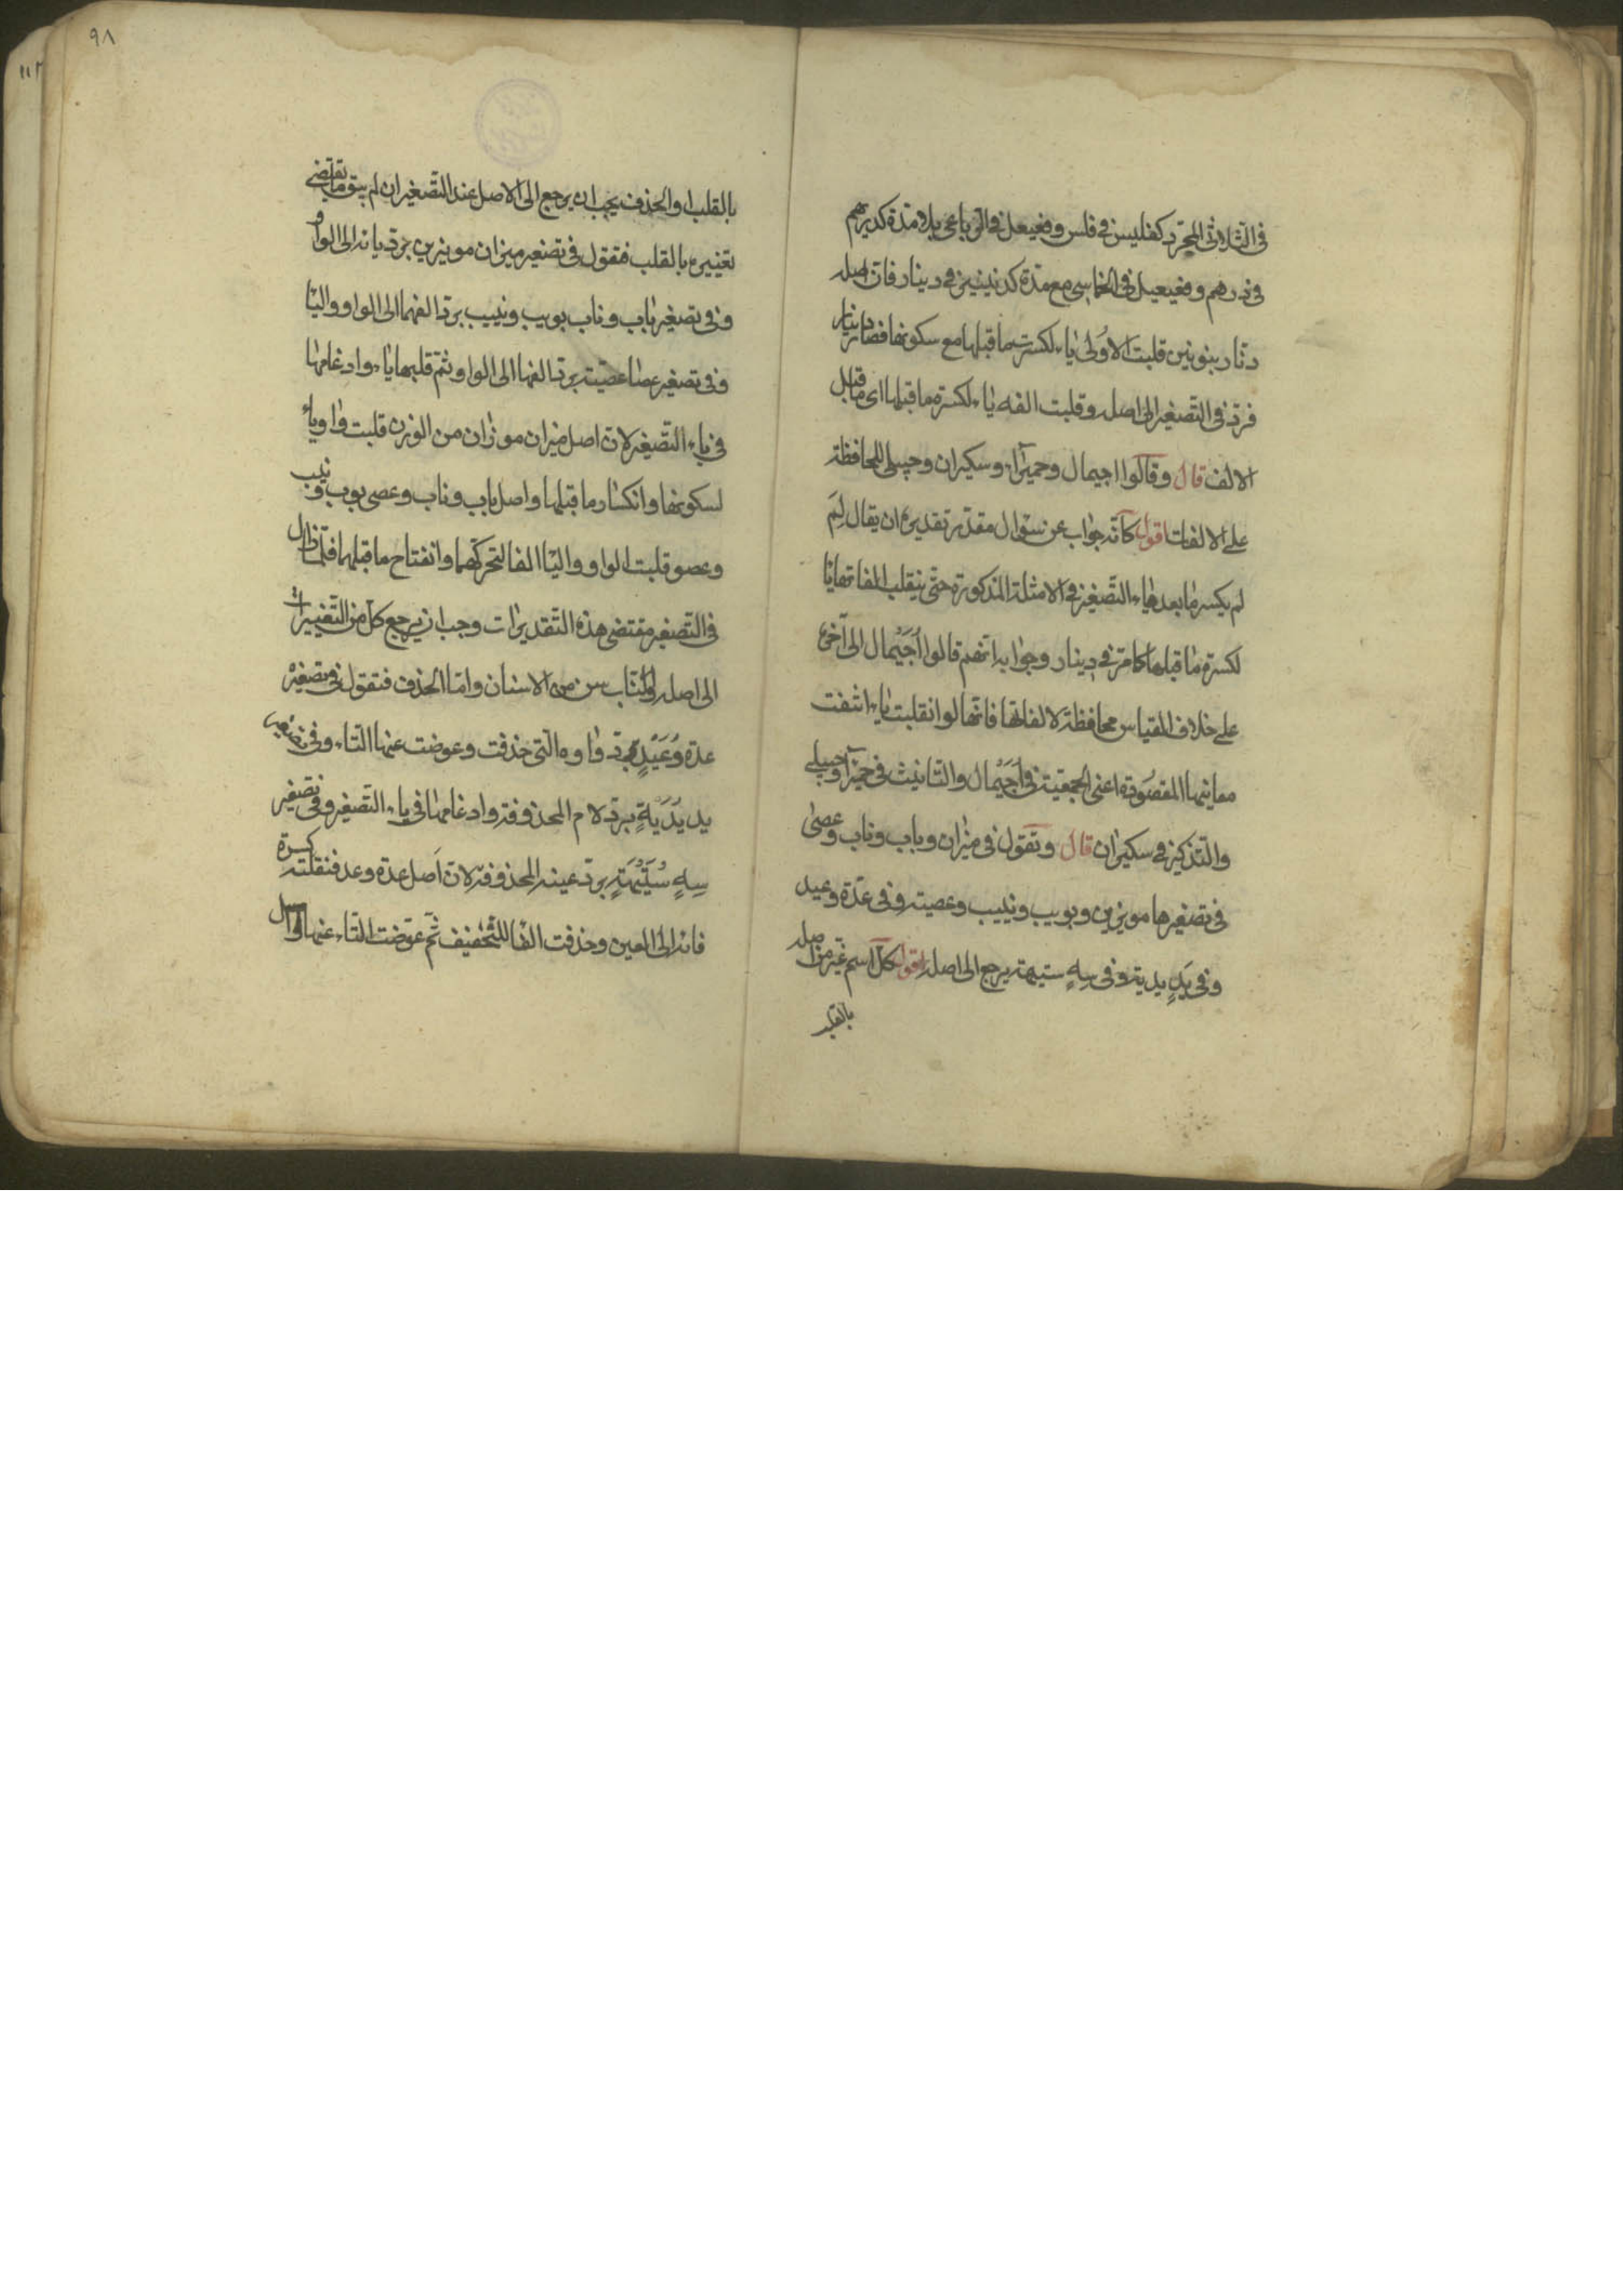 فى الثلاثى المجرد كفليس فى فلس وفعيعل فى الرباعى بلا مدة كدريهم
فى درهم وفعيعيل فى الخماسى مع مدة كدنينير فى دينار فان اصله
دنار بنونين قلبت الاولى ياء لكسرة ما قبلها مع سكونها فصار دينار
فرد فى التصغير الى اصله وقلبت الفه ياء لكسرة ما قبلها اى ما قبل
الالف قال وقالوا اجيمال وحميراء وسكيران وحبيلى للمحافظة
على الالفات اقول كانه جواب عن سؤال مقدر تقديره ان يقال لِمَ
لم يكسر ما بعد ياء التصغير فى الامثلة المذكورة حتى ينقلب الفاتها يا
لكسرة ما قبلها كما مر فى دينار وجوابه انهم قالوا اُجَيْمال الى آخره
على خلاف القياس محافظة لالفاتها فانها لو انقلبت ياء انتفت
معانيها المقصودة اعنى الجمعية فى اُجَيْمال والتانيث فى حميراء وحبيلى
والتذكير فى سكيران قال وتقول فى ميزان وباب وناب وعصى
فى تصغيرها مويزين وبويب ونييب وعصية وفى عدة وعيد
وفى يَدٍ يدية وفى سِهٍ ستيهة يرجع الى اصله اقول كل اسم غير من اصله
بالقلب
٩٨
١١٢
بالقلب او الحذف يجب ان يرجع الى الاصل عند التصغير ان لم يبق ما يقتضى
تغييره بالقلب فتقول فى تصغير ميزان مويزين برد يائه الى الواو
وفى تصغير باب وناب بويب ونييب برد الفهما الى الواو واليا
وفى تصغير عصا عصية برد الفها الى الواو وثم قلبها ياء وادغامها
فى ياء التصغير لان اصل ميزان موزان من الوزن قلبت واو ياء
لسكونها وانكسار ما قبلها واصل باب وناب وعصى بوب ونيب
وعصو قلبت الواو واليا الفا لتحركهما وانفتاح ما قبلهما فلما زال
فى التصغير مقتضى هذه التقديرات وجب ان يرجع كل من التغييرات
الى اصله والناب سن من الاسنان واما الحذف فتقول فى تصغير
عدة وُعَيْدٍ برد واوه التى حذفت وعوضت عنها التاء وفى تصغير
يد يُدَيَّةٍ برد لام المحذوفة وادغامها فى ياء التصغير وفى تصغير
سِهٍ سُتَيْهَةٍ برد عينه المحذوفة لان اصل عدة وعد فنقلت كسرة
فائه الى العين وحذفت الفا للتخفيف ثم عوضت التاء عنها واصل